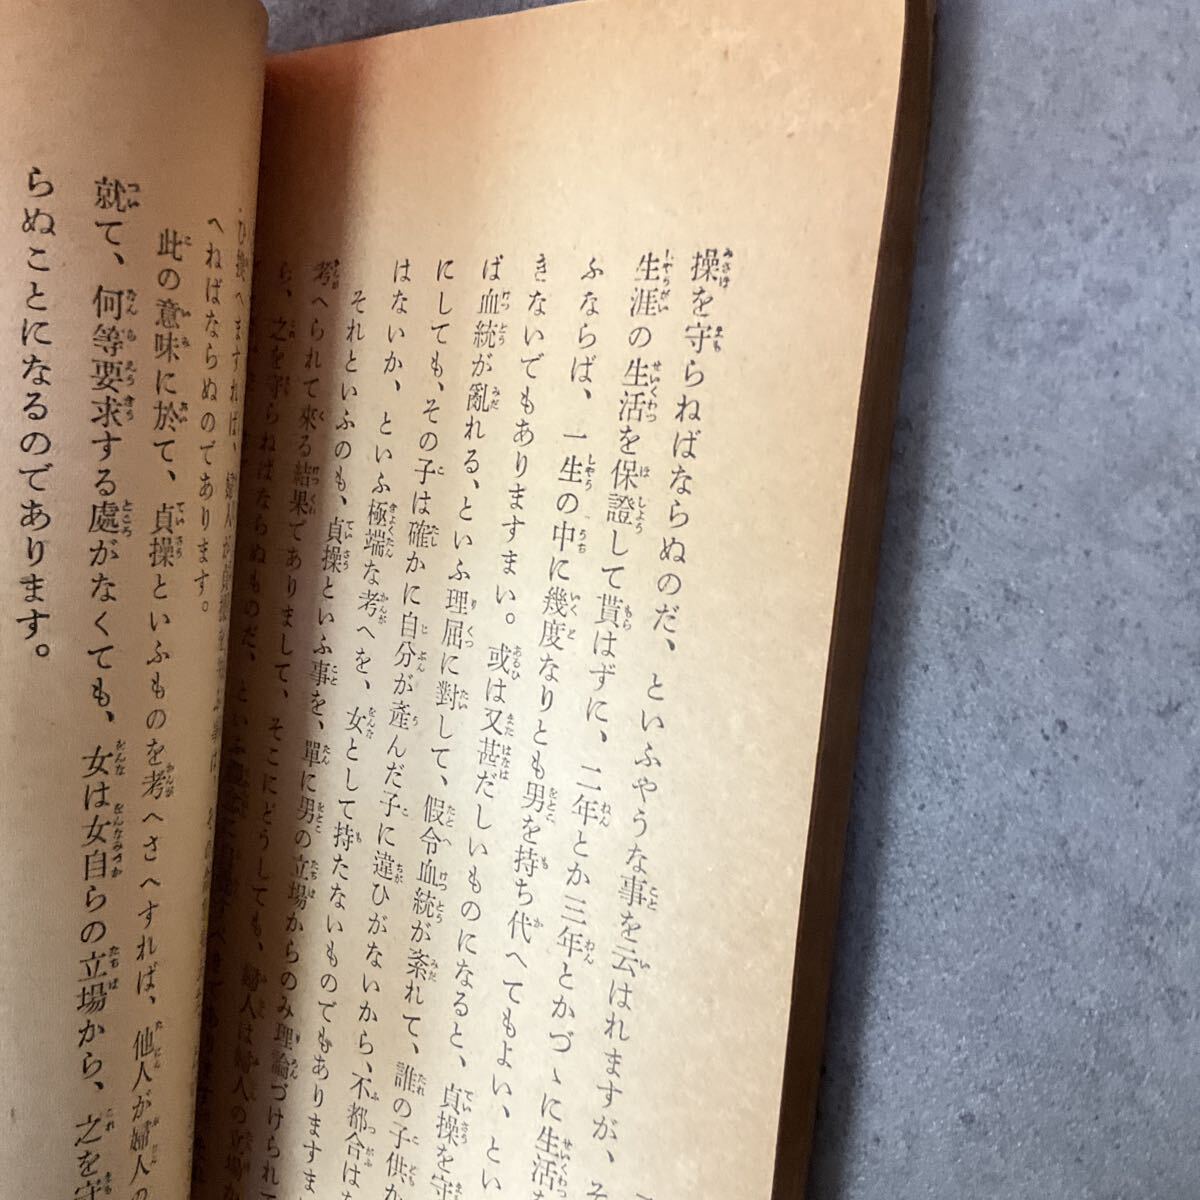 操を守らねばならぬのだ、といふやうな事を云はれますが、そ
生涯の生活を保證して貰はずに、二年とか三年とかづゝに生活を
ふならば、一生の中に幾度なりとも男を持ち代へてもよい、とい
きないでもありますまい。或は又甚だしいものになると、貞操を守
ば血統が亂れる、といふ理屈に對して、假令血統が紊れて、誰の子供か
にしても、その子は確かに自分が産んだ子に違ひがないから、不都合は
はないか、といふ極端な考へを、女として持たないものでもありますま
それといふのも、貞操といふ事を、單に男の立場からのみ理論づけられて
考へられて來る結果でありまして、そこにどうしても、婦人は婦人の立場か
ら、之を守らねばならぬものだ、といふ
へねばならぬのであります。
此の意味に於て、貞操といふものを考へさへすれば、他人が婦人の
就て、何等要求する處がなくても、女は女自らの立場から、之を守
らぬことになるのであります。